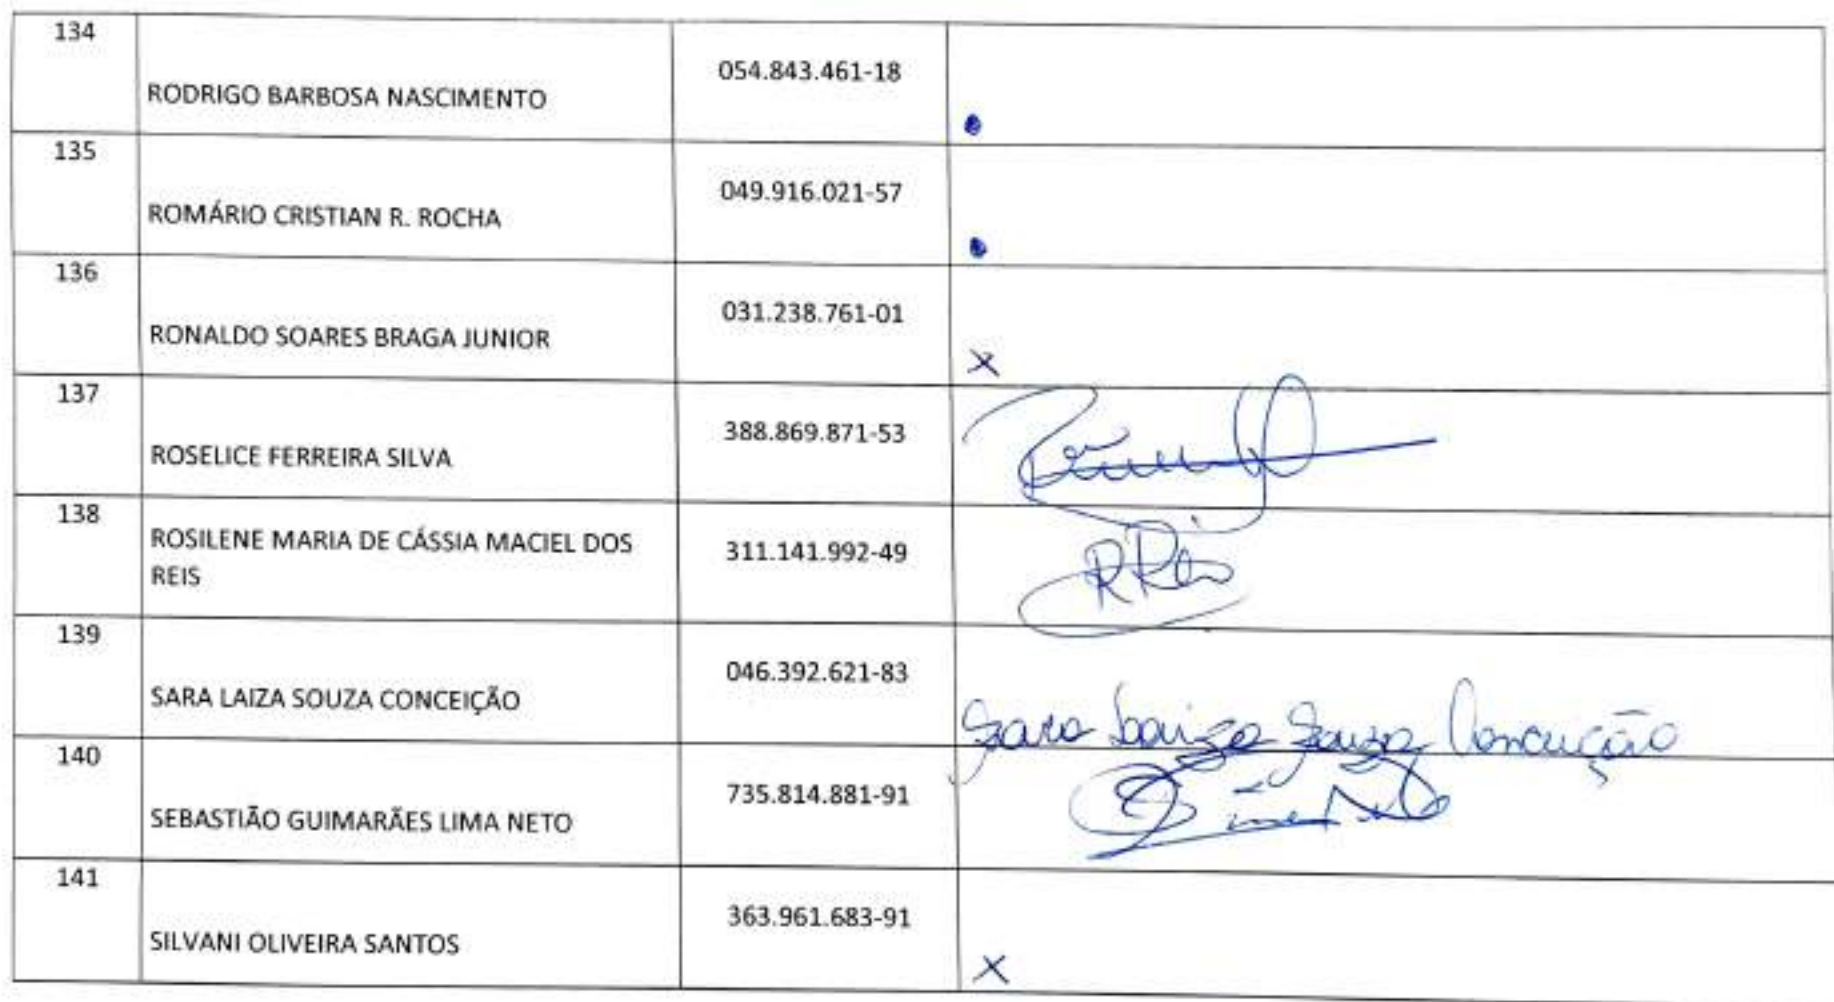 134
RODRIGO BARBOSA NASCIMENTO
054.843.461-18
135
ROMÁRIO CRISTIAN R. ROCHA
049.916.021-57
136
RONALDO SOARES BRAGA JUNIOR
031.238.761-01
X
137
ROSELICE FERREIRA SILVA
388.869.871-53
138
ROSILENE MARIA DE CÁSSIA MACIEL DOS
REIS
311.141.992-49
RReis
139
SARA LAIZA SOUZA CONCEIÇÃO
046.392.621-83
Sara Laiza Souza Conceição
140
SEBASTIÃO GUIMARÃES LIMA NETO
735.814.881-91
141
SILVANI OLIVEIRA SANTOS
363.961.683-91
X